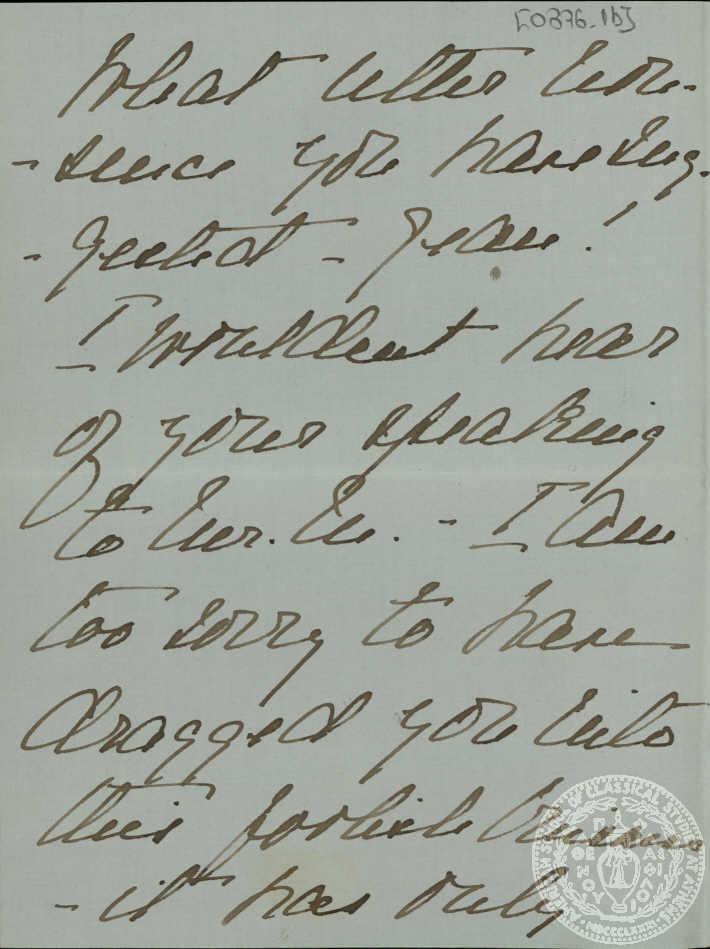 [0376-1b]
What utter non-
-sence you have sug-
-gested - Jean!
I wouldent hear
of your speaking
to Mr. M. - I am
too sorry to have
dragged you into
this foolish business
- it has only